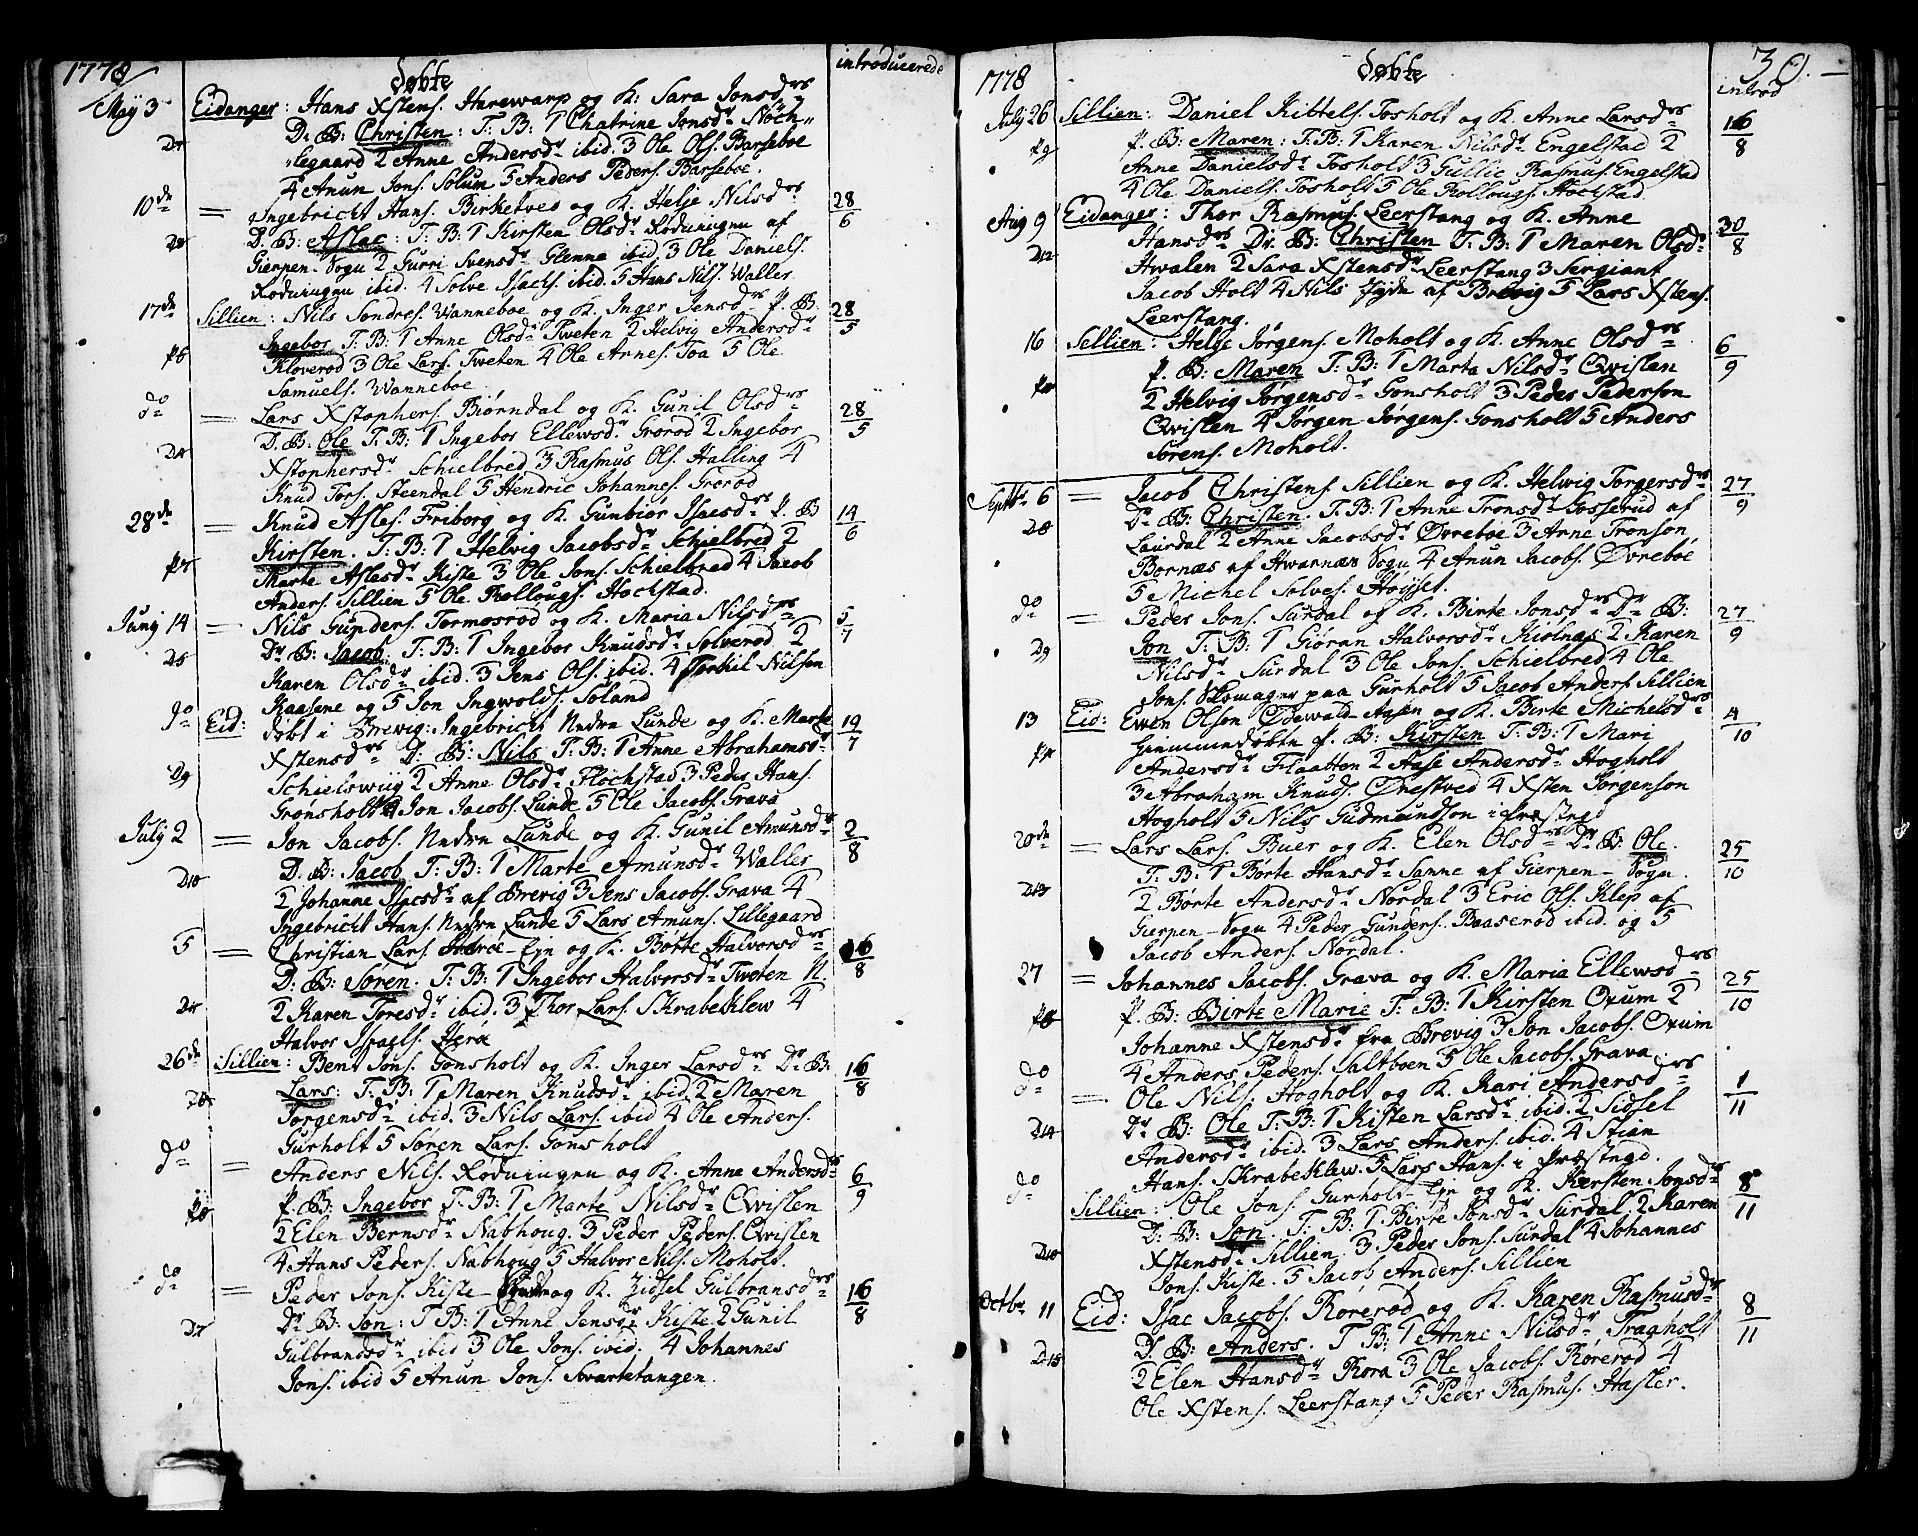 1778
Döbte
introducerede
May 3 Eidanger: Hans Xstens. Harewarp og K: Sara Jonsdrs
Dr. B: Christen: T: B: 1 Chatrine Jonsdr Nöch„
„legaard 2 Anne Andersdr ibid. 3 Ole Ols. Barseboe
4 Anun Jons. Solum 5 Anders Peders. Barseboe.
10de = Ingebricht Hans. Birketved og K. Helje Nilsdrs 28/6
D. B: Aslac: T: B: 1 Kirsten Olsdr Rödningen af
Gierpen-Sogn 2 Gurri Svensdr Glenne ibid. 3 Ole Daniels.
Rödningen ibid. 4 Solve Isachs. ibid. 5 Hans Nils. Waller
17de Sillien: Nils Sondres. Wanneboe og K. Inger Jensdrs P. B. 28/5
Ingebor T. B: 1 Anne Olsdr Tweten 2 Helvig Andersdr
Kloverod 3 Ole Lars. Tweten 4 Ole Arnes. Toa 5 Ole
Samuels. Wanneboe
do = Lars Xstophers. Biørndal og K. Gunil Olsdrs 28/5
D. B: Ole T. B: 1 Ingebor Ellewsdr Grorod 2 Ingebor
Xstophersdr Schielbred 3 Rasmus Ols. Halling 4
Knud Tors. Steendal 5 Hendric Johannes. Grorod
28de = Knud Asles. Friborg og K. Gunbiör Isacsdrs P. B 14/6
Kirsten. T. B: 1 Helvig Jacobsdr Schielbred 2
Marte Aslesdr Kiste 3 Ole Jons. Schielbred 4 Jacob
Anders. Sillien 5 Ole Rollougs. Hochstad.
Junij 14 = Nils Gunders. Tormosrod og K. Maria Nilsdrs 5/7
Dr. B: Jacob. T. B: 1 Ingebor Knudsdr Solverod 2
Karen Olsdr ibid. 3 Jens Ols. ibid. 4 Torkil Nilson
Kaasene og 5 Jon Ingwolds. Soland
do Eid: döbt i Brevig: Ingebricht Nedre Lunde og K. Marte 19/7
Xstensdrs D. B: Nils T. B: 1 Anne Abrahamsdr
Schielswiig 2 Anne Olsdr Flochstad 3 Peder Hans.
Grønsholt 4 Jon Jacobs. Lunde 5 Ole Jacobs. Grava
July 2 = Jon Jacobs. Nedre Lunde og K. Gunil Amunsdr 2/8
D. B: Jacob T. B: 1 Marte Amunsdr Waller
2 Johanne Isacsdr af Brevig 3 Jens Jacobs. Grava 4
Ingebricht Hans. Nedre Lunde 5 Lars Amuns. Lillegaard
5 = Christian Lars. Eje og K. Börte Halvorsdrs 16/8
D. B: Søren. T. B: 1 Ingebor Halvorsdr Tweten N.
2 Karen Toresdr ibid. 3 Thor Lars. Skrabeklew 4
Halvor Israels. Herø
26de Sillien: Bent Jons. Gonsholt og K. Inger Larsdrs Dr B: 16/8
Lars: T. B: 1 Maren Knudsdr ibid 2 Maren
Jorgensdr ibid. 3 Nils Lars. ibid 4 Ole Anders.
Gurholt 5 Søren Lars. Gonsholt
do = Anders Nils. Rödningen og K. Anne Andersdrs 6/9
P. B: Ingebor T. B: 1 Marte Nilsdr Qvislen
2 Elen Bernsdr Nabhoug. 3 Peder Peders. Qvislen
4 Hans Peders. Nabhoug 5 Halvor Nils. Moholt.
do = Peder Jons. Kiste og K. Zidsel Gulbransdrs 16/8
Dr. B: Jon: T. B: 1 Anne Jensdr Kiste 2 Gunil
Gulbrandsdr ibid 3 Ole Jons. ibid. 4 Johannes
Jons. ibid 5 Anun Jons. Svartetangen.
1778
Döbte
30.
introd
July 26 Sillien: Daniel Kittels. Tosholt og K. Anne Larsdrs 16/8
P. B: Maren: T. B: 1 Karen Nilsdr Engelstad 2
Anne Danielsdr Tosholt 3 Gullic Rasmus. Engelstad
4 Ole Daniels. Tosholt 5 Ole Rollougs. Hochstad.
Aug 9 Eidanger: Thor Rasmus. Leerstang og K. Anne 30/8
Hansdrs Dr. B: Christen T. B: 1 Maren Olsdr
Hwalen 2 Sara Xstensdr Leerstang 3 Sergiant
Jacob Holt 4 Nils Jyde af Brevig 5 Lars Xstens.
Leerstang.
16 Sillien: Helge Jørgens. Moholt og K. Anne Olsdrs 6/9
P. B: Maren T. B: 1 Marta Nilsdr Qvislen
2 Helvig Jørgensdr Gonsholt 3 Peder Pederson
Qvislen 4 Jørgen Jørgens. Gonsholt 5 Anders
Sørens. Moholt.
Septbr 6 = Jacob Christens. Sillien og K. Helvig Torgersdrs 27/9
Dr. B: Christen. T. B: 1 Anne Tronsdr Fosserud af
Laurdal 2 Anne Jacobsdr Øvreboe 3 Arne Tronson
Bornæs af Hwarnæs Sogn 4 Anun Jacobs. Øvreboe
5 Michel Solves. Høyset.
do = Peder Jons. Surdal og K. Birte Jonsdrs Dr B: 27/9
Jon T. B: 1 Giøran Halvorsdr Kiolnæs 2 Karen
Nilsdr Surdal 3 Ole Jons. Schielbred 4 Ole
Jons. Skomager paa Gurholt 5 Jacob Anders. Sillien
13 Eid: Ewen Olson Ødewald Aasen og K. Birte Michelsdrs 4/10
hiemmedöbte P. B: Kirsten T. B: 1 Mari
Andersdr Flaatten 2 Aase Andersdr Hogholt
3 Abraham Knuds. Ørestved 4 Xsten Jørgenson
Hogholt 5 Nils Gudmundson i Præstegd
20de = Lars Lars. Buer og K. Elen Olsdr Dr. B: Ole. 25/10
T. B: 1 Børte Hansdr Sanne af Gierpen-Sogn.
2 Børte Andersdr Nordal 3 Eric Ols. Klep af
Gierpen-Sogn 4 Peder Gunders. Baaserod ibid. og 5
Jacob Anders. Nordal.
27 = Johannes Jacobs. Grava og K. Maria Ellewsdrs 25/10
P. B: Birte Marie T. B: 1 Kirsten Orum 2
Johanne Xstensdr fra Brevig 3 Jon Jacobs. Orum
4 Anders Peders. Saltboen 5 Ole Jacobs. Grava
do = Ole Nils. Hogholt og K. Kari Andersdrs 1/11
Dr B: Ole T. B: 1 Kisten Larsdr ibid. 2 Sidsel
Andersdr ibid. 3 Lars Anders. ibid. 4 Stian
Hans. Skrabeklew. 5 Lars Hans. i Præstegd.
do Sillien: Ole Jons. Gurholt-Eje og K. Kersten Jonsdrs 8/11
D: B: Jon T. B: 1 Birte Jonsdr Surdal 2 Karen
Xstensdr Sillien. 3 Peder Jons. Surdal 4 Johannes
Jons. Kiste. 5 Jacob Anders. Sillien
Octbr 11 Eid: Isac Jacobs. Rorerod og K. Karen Rasmusdrs 8/11
D. B: Anders. T B: 1 Anne Nilsdr Tragholt
2 Elen Hansdr Rora 3 Ole Jacobs. Rorerod 4
Ole Xstens. Leerstang 5 Peder Rasmus. Hasler.